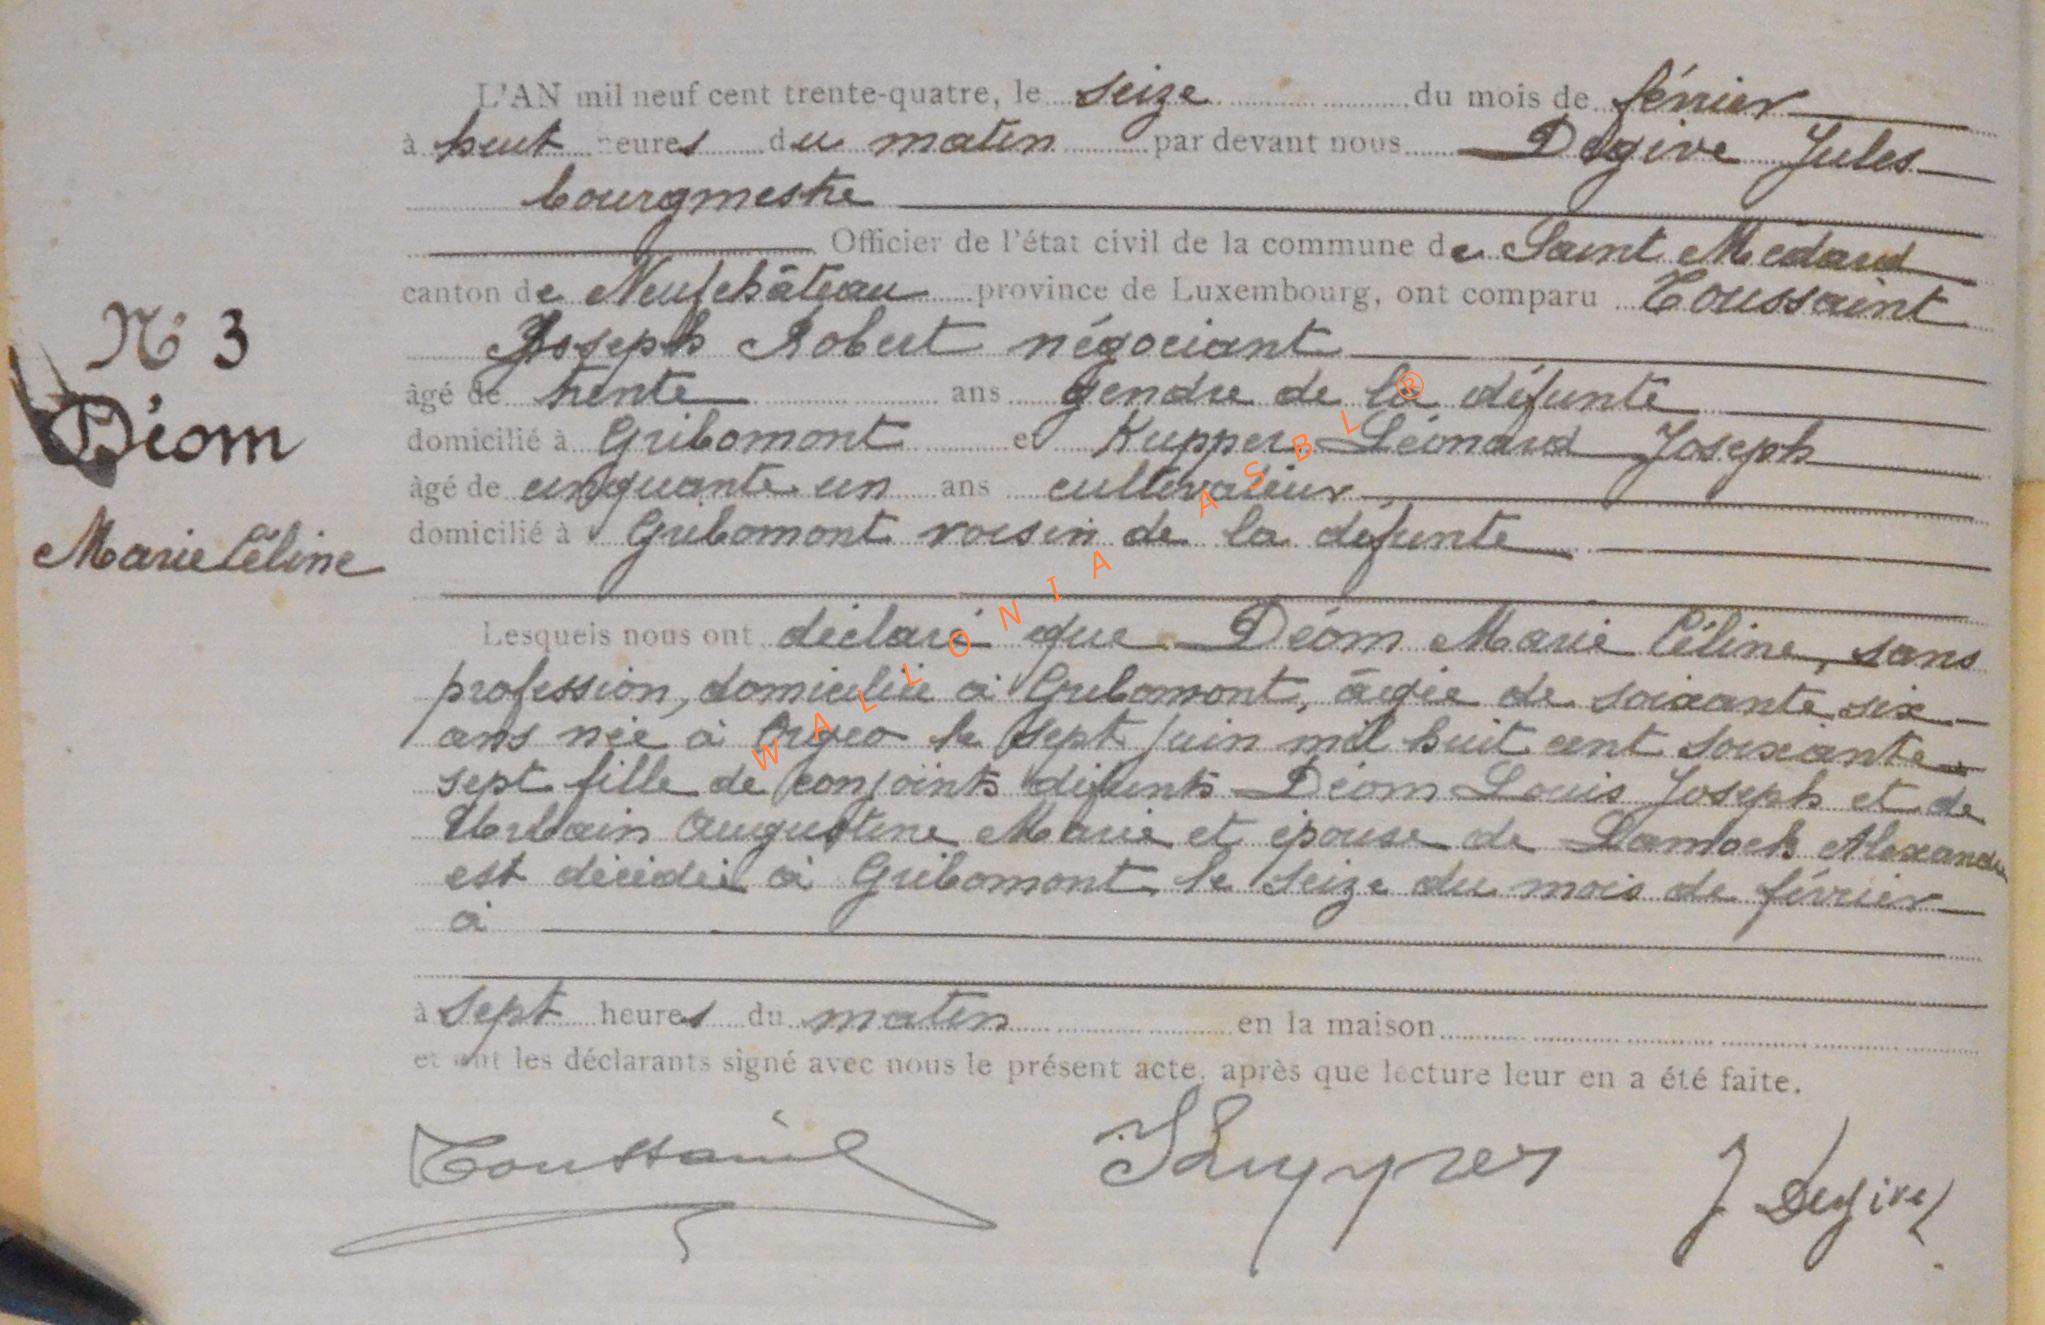 L'AN mil neuf cent trente-quatre, le seize du mois de février
à huit heures du matin par devant nous Degive Jules
bourgmestre
Officier de l'état civil de la commune de Saint Médard
canton de Neufchâteau province de Luxembourg, ont comparu Toussaint
Joseph Robert négociant
âgé de trente ans gendre de la défunte
domicilié à Gribomont et Kupper Léonard Joseph
âgé de cinquante un ans cultivateur
domicilié à Gribomont voisin de la défunte
N° 3
Déom
Marie Céline
Lesquels nous ont déclaré que Déom Marie Céline, sans
profession, domiciliée à Gribomont, âgée de soixante six
ans née à Orgeo le sept juin mil huit cent soixante
sept fille de conjoints défunts Déom Louis Joseph et de
Urbain Augustine Marie et épouse de Lamock Alexandre
est décédée à Gribomont le seize du mois de février
à
à sept heures du matin en la maison
et ont les déclarants signé avec nous le présent acte, après que lecture leur en a été faite.
Toussaint
J Degive
WALLONIA ASBL ®